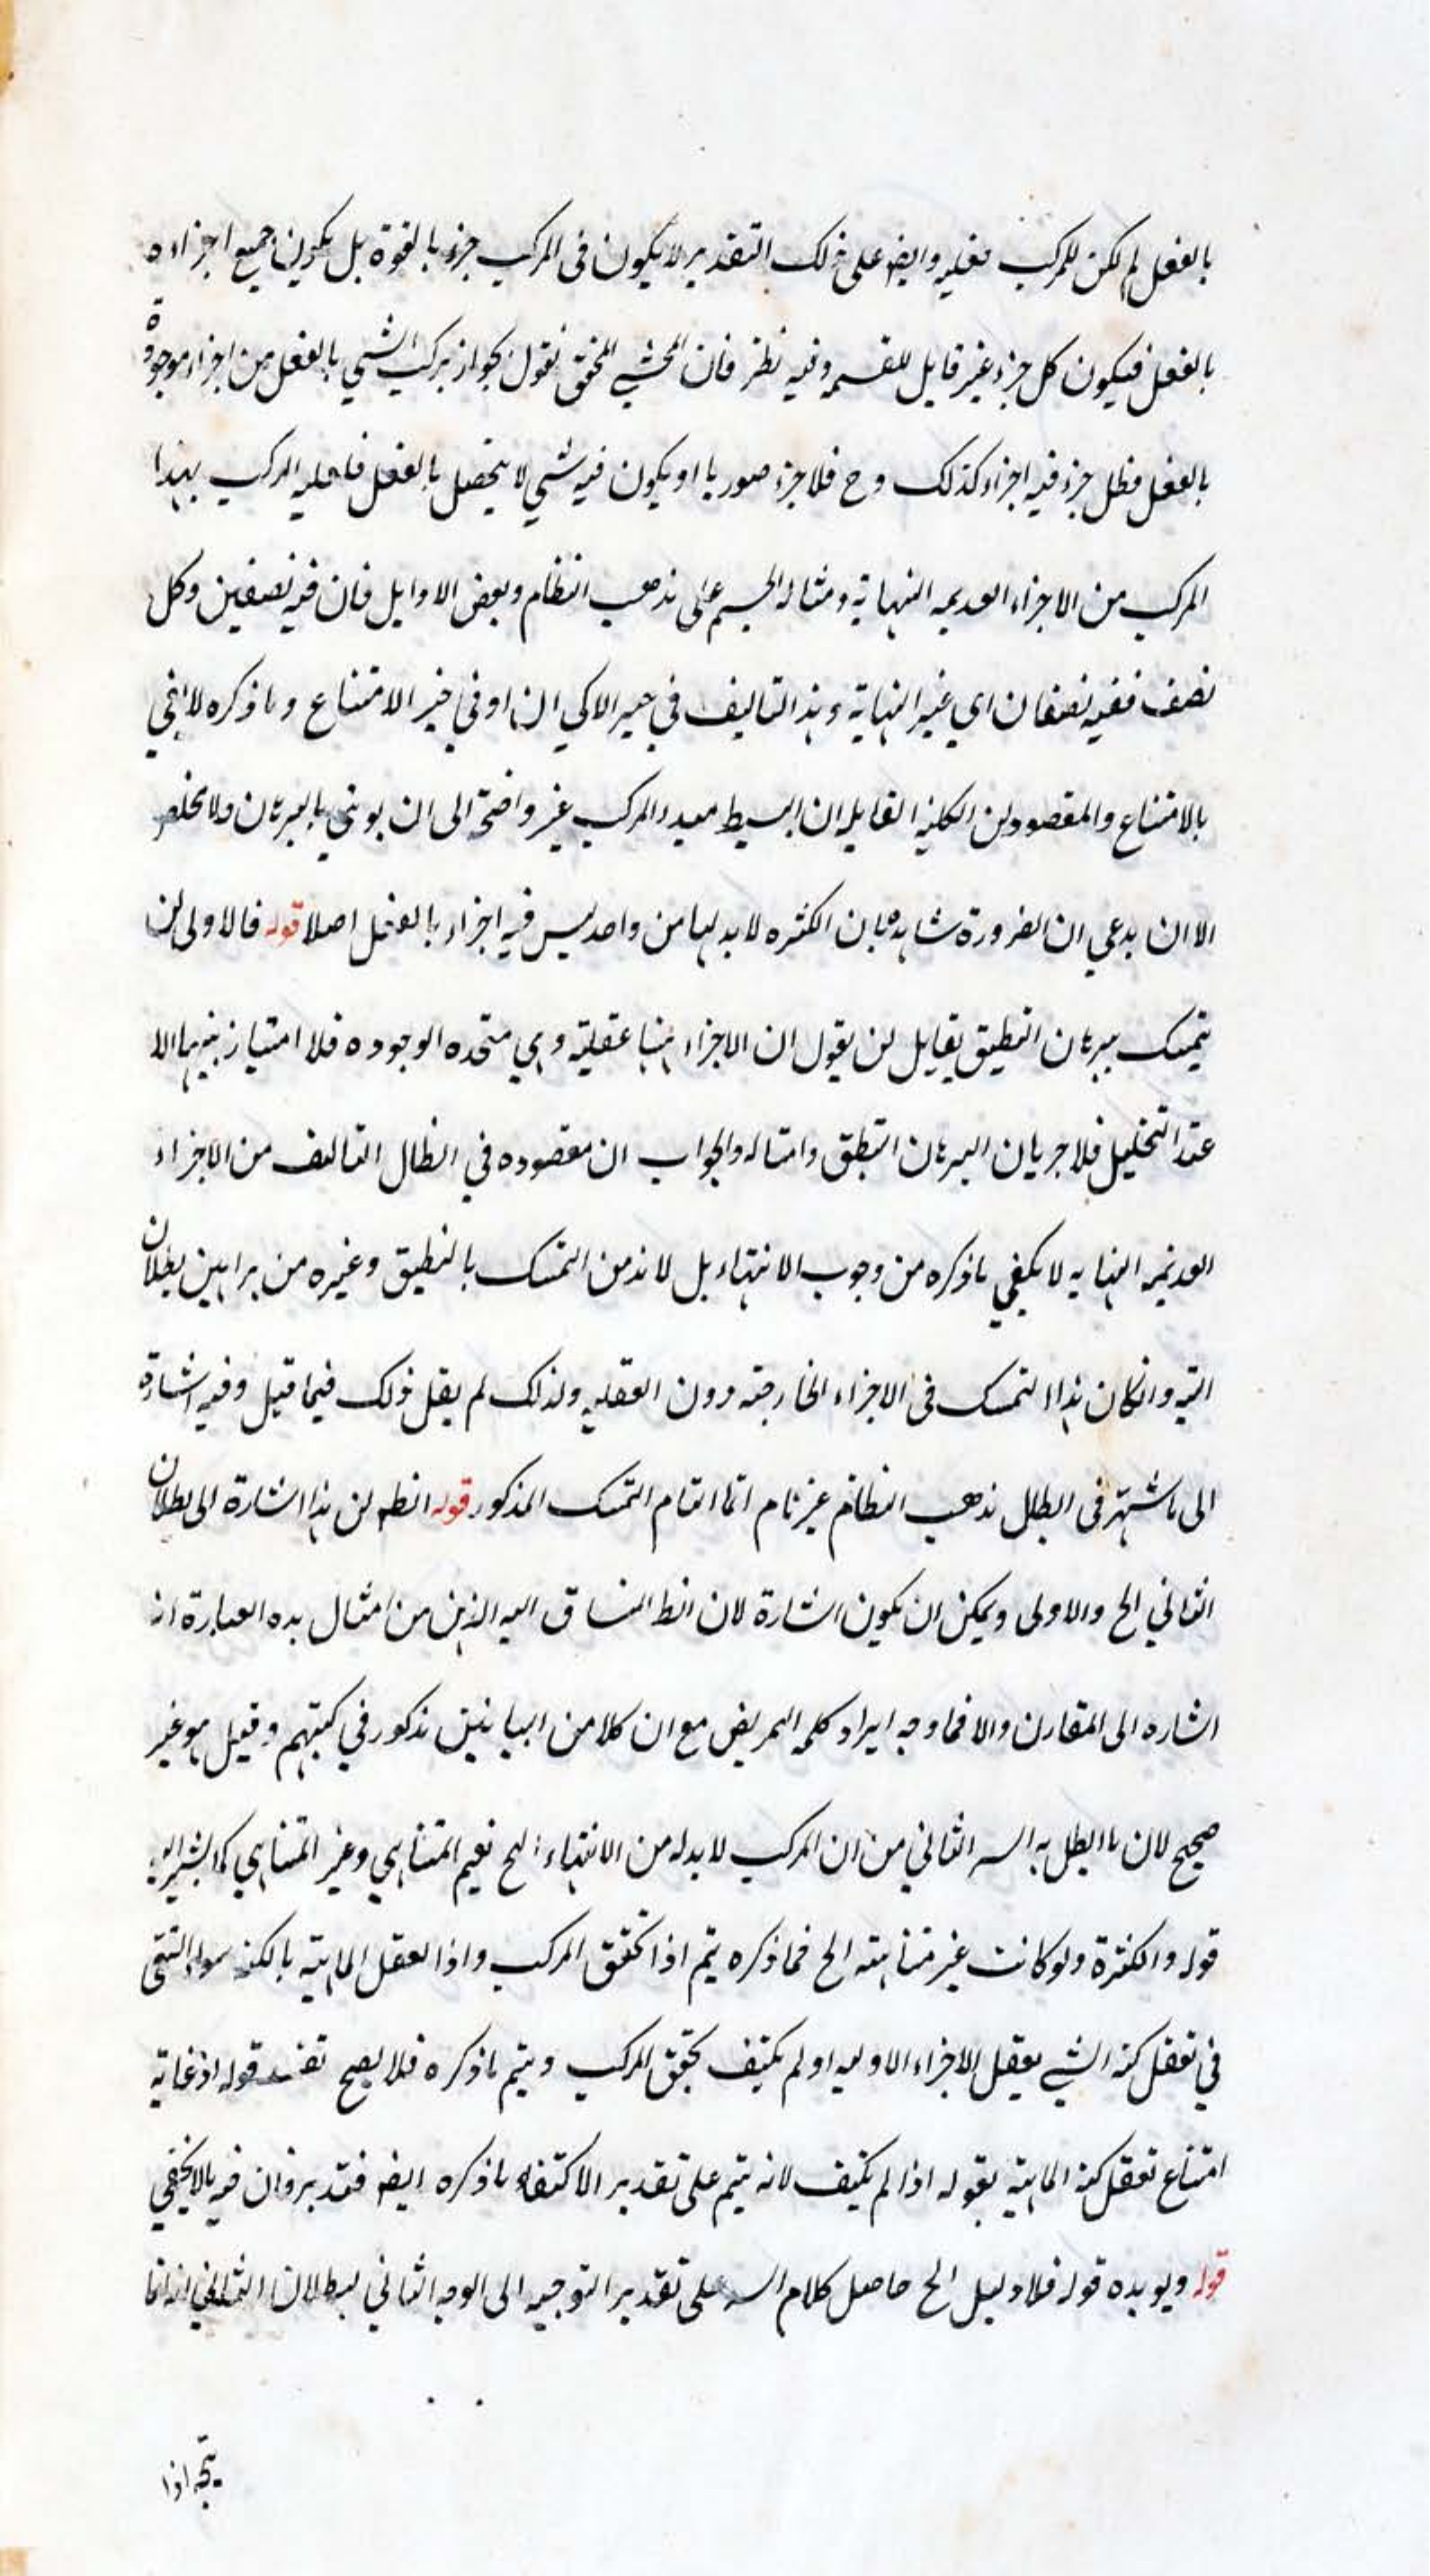 بالفعل لم يكن للمركب فعليه وايضه على ذلك التقدير لا يكون فى المركب جزء بالقوة بل يكون جميع اجزاءه
بالفعل فيكون كل جزء غير قابل للقسمه وفيه نظر فان المحشي المحقق نقول بجواز تركب الشي بالفعل من اجزاء موجودة
بالفعل فظل جزء فيه اجزاء كذلك وح فلا جزء صوريا او يكون فيه شي لا يتحصل بالفعل المركب بهذا
المركب من الاجزاء العديمه النهاية ومثاله الجسم على مذهب النظام وبعض الاوايل فان فيه نصفين وكل
نصف ففيه نصفان اي غير النهاية وهذا التاليف في او في حيز الامتناع وما ذكره لا
بالامتناع والمقصود ان الكلية القايله ان البسيط مبدء المركب غير واضحة الى ان بالبرهان ولا مخلص
الا ان يدعي ان الضرورة شاهدة بان الكثره لا بد لها من واحد ليس فيه اجزاء بالفعل اصلا قوله فالاولى ان
يتمسك ببرهان التطبيق لقايل ان يقول ان الاجزاء هنا عقلية وهي متحده الوجود فلا امتياز بينهما الا
عند التحليل فلا جريان البرهان التطبق وامثاله والجواب ان مقصوده في ابطال التالف من الاجزاء
العديمه النهايه لا يكفي ما ذكره من وجوب الانتهاء بل لا بد من التمسك بالتطبيق وغيره من براهين بطلان
التيه وانكان هذا التمسك فى الاجزاء الخارجته دون العقليه ولذلك لم يقل ذلك فيما قيل وفيه اشارة
الى ما اشتهر فى ابطال مذهب النظام غير تام انما اتمام التمسك المذكور قوله انظه ان هذا اشارة الى بطلان
الثاني الخ والاولى ويمكن ان يكون اشارة لان انظ المنساق اليه الذهن من امثال هذه العبارة انه
اشاره الى المقارن والا فما وجه ايراد كلمه التمريض مع ان كلا من البيانين مذكور في كتبهم وقيل هو غير
صحيح لان ما ابطل به السه الثاني من ان المركب لا بد له من الانتهاء الخ نعيم المتناهي وغير المتناهي كما يشير اليه
قوله والكثرة ولو كانت غير متناهيته الخ فما ذكره يتم اذا تحقق المركب واذا تعقل الماهيته بالكنه سواء اكتفى
في تعقل كنه الشي بعقل الاجزاء الاوليه او لم يكتف بحقق المركب ويتم ما ذكره فلا يصح تقييد قوله اذ غاية
امتناع تعقل كنه الماهية بقوله اذا لم يكتف لانه يتم على تقدير الاكتفاء ما ذكره ايضه فتدبر وان فيه ما لا يخفي
قوله ويويده قوله فلا دليل الخ حاصل كلام السه على تقدير التوجيه الى الوجه الثاني لبطلان الثاني انه انما
يتجه اذا